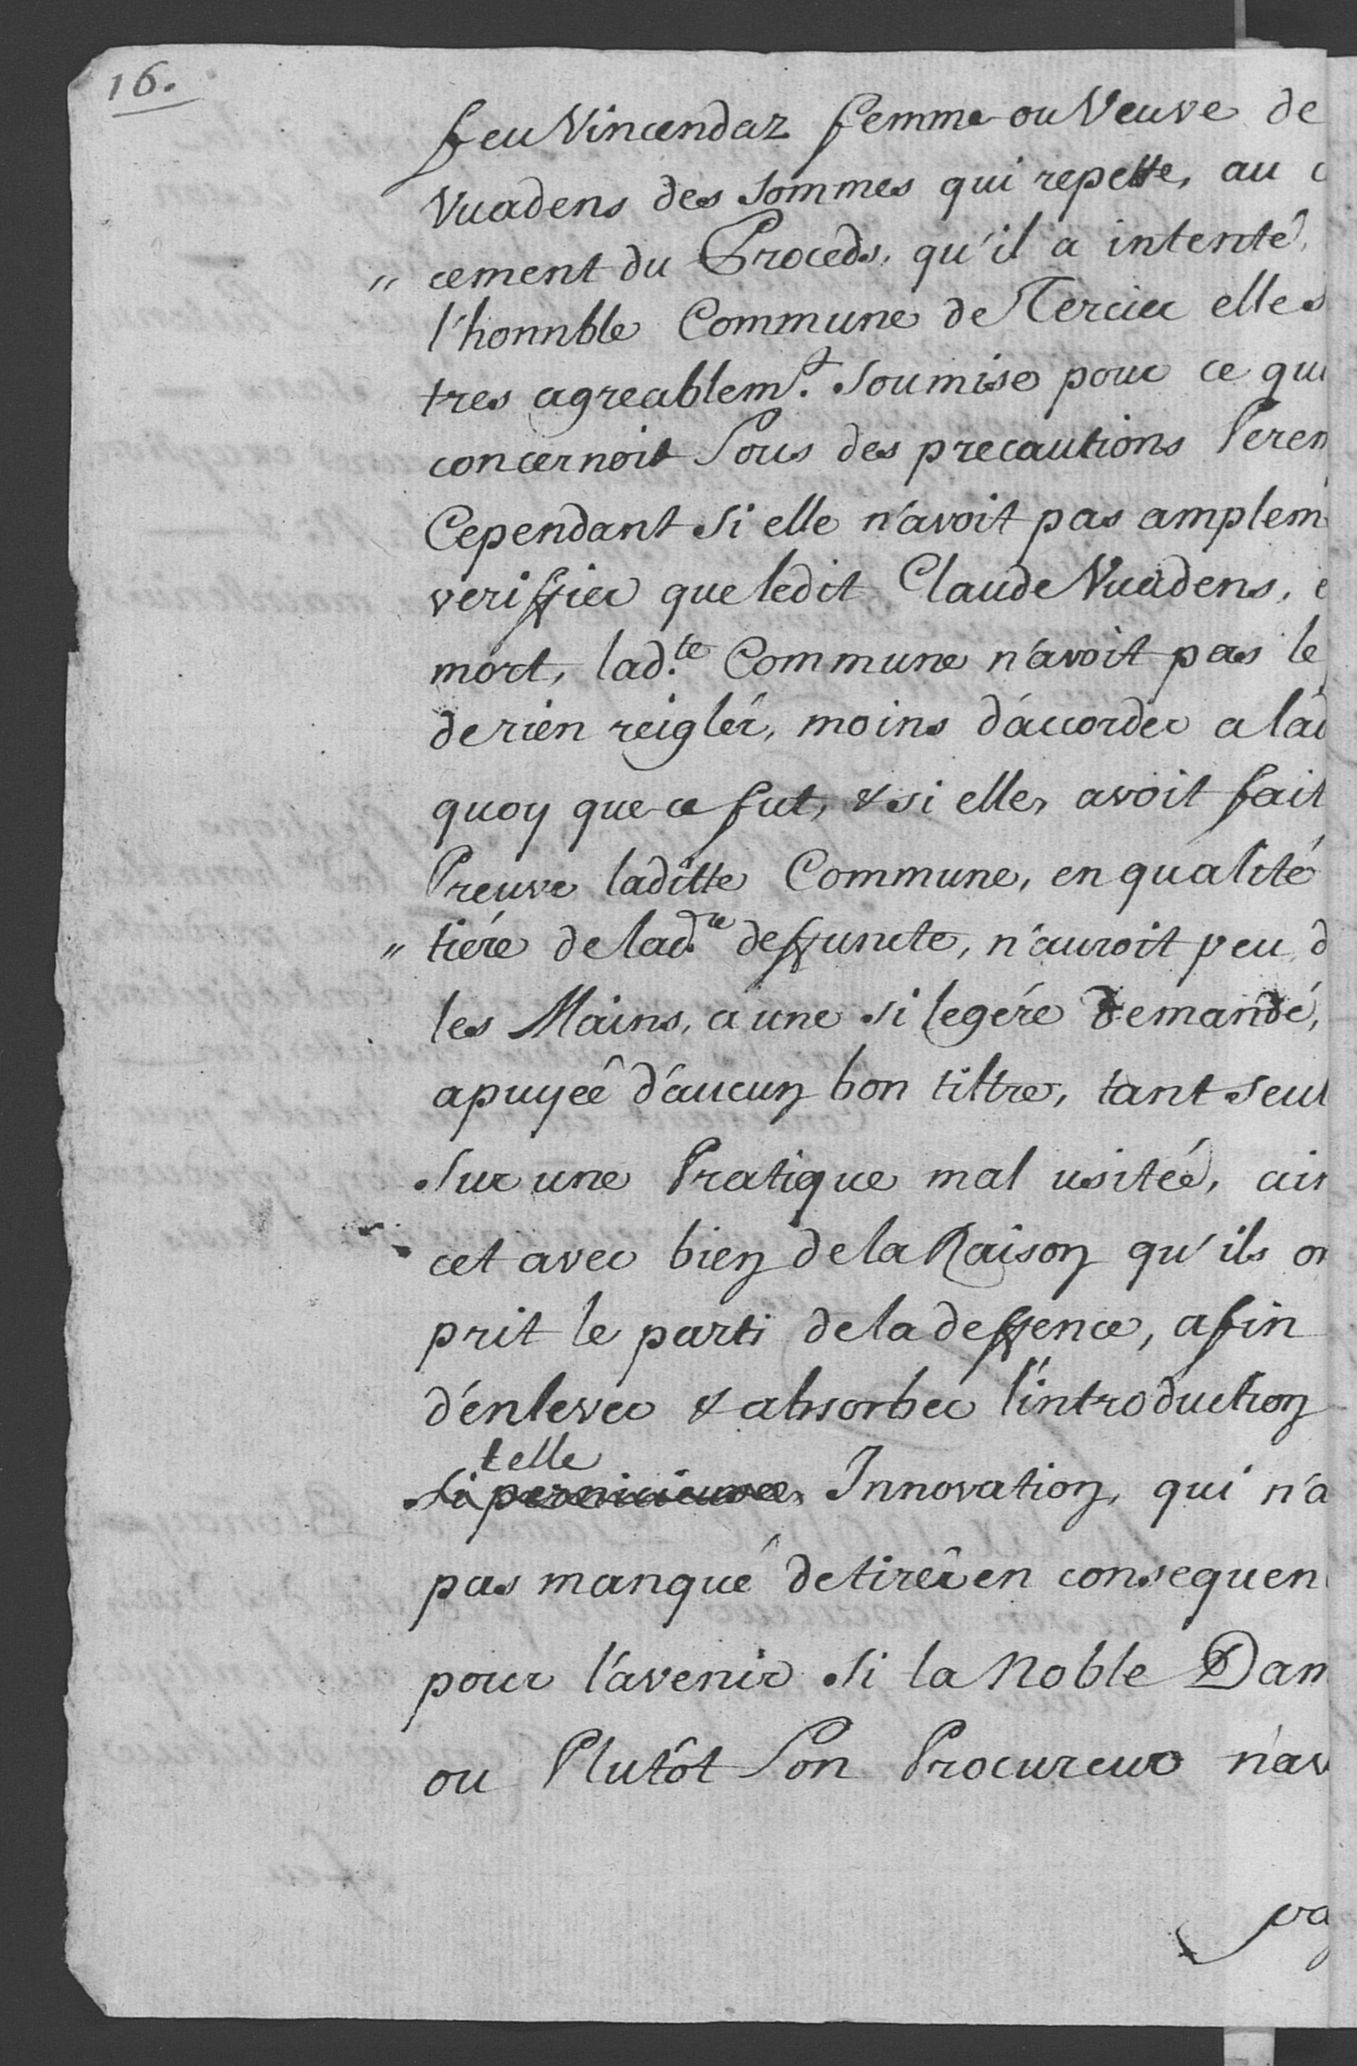 16.
feu Vincendaz femme ou Veuve de
Vuadens des Sommes qui repette, au
„ cement du Proceds, qu'il a intenté,
l'honnble Commune de Tercier elle s
tres agreablem.t Soumise pour ce qui
concernoit Sous des precautions Perem
Cependant Si elle n'avoit pas amplem
veriffier que ledit Claude Vuadens,
mort, lad.te Commune n'avoit pas le
de rien reiglér, moins d'accorder a lad
quoy que ce fut, & si elle, avoit fait
Preuve laditte Commune, en qualité
„ tiére de lad.te deffuncte, n'auroit peu d
les Mains, a une si legére Demandé,
apuyeê d'aucun bon tiltre, tant seul
Sur une Pratique mal usitéé, ain
cet avec bien de la Raison qu'ils on
prit le parti de la deffence, afin
d'énlever & absorber l'introduction
telle
Si pernicieuse, Innovation, qui n'a
pas manqué de tirér en consequen
pour l'avenir Si la Noble Dam
ou Plutôt Son Procureur n'av